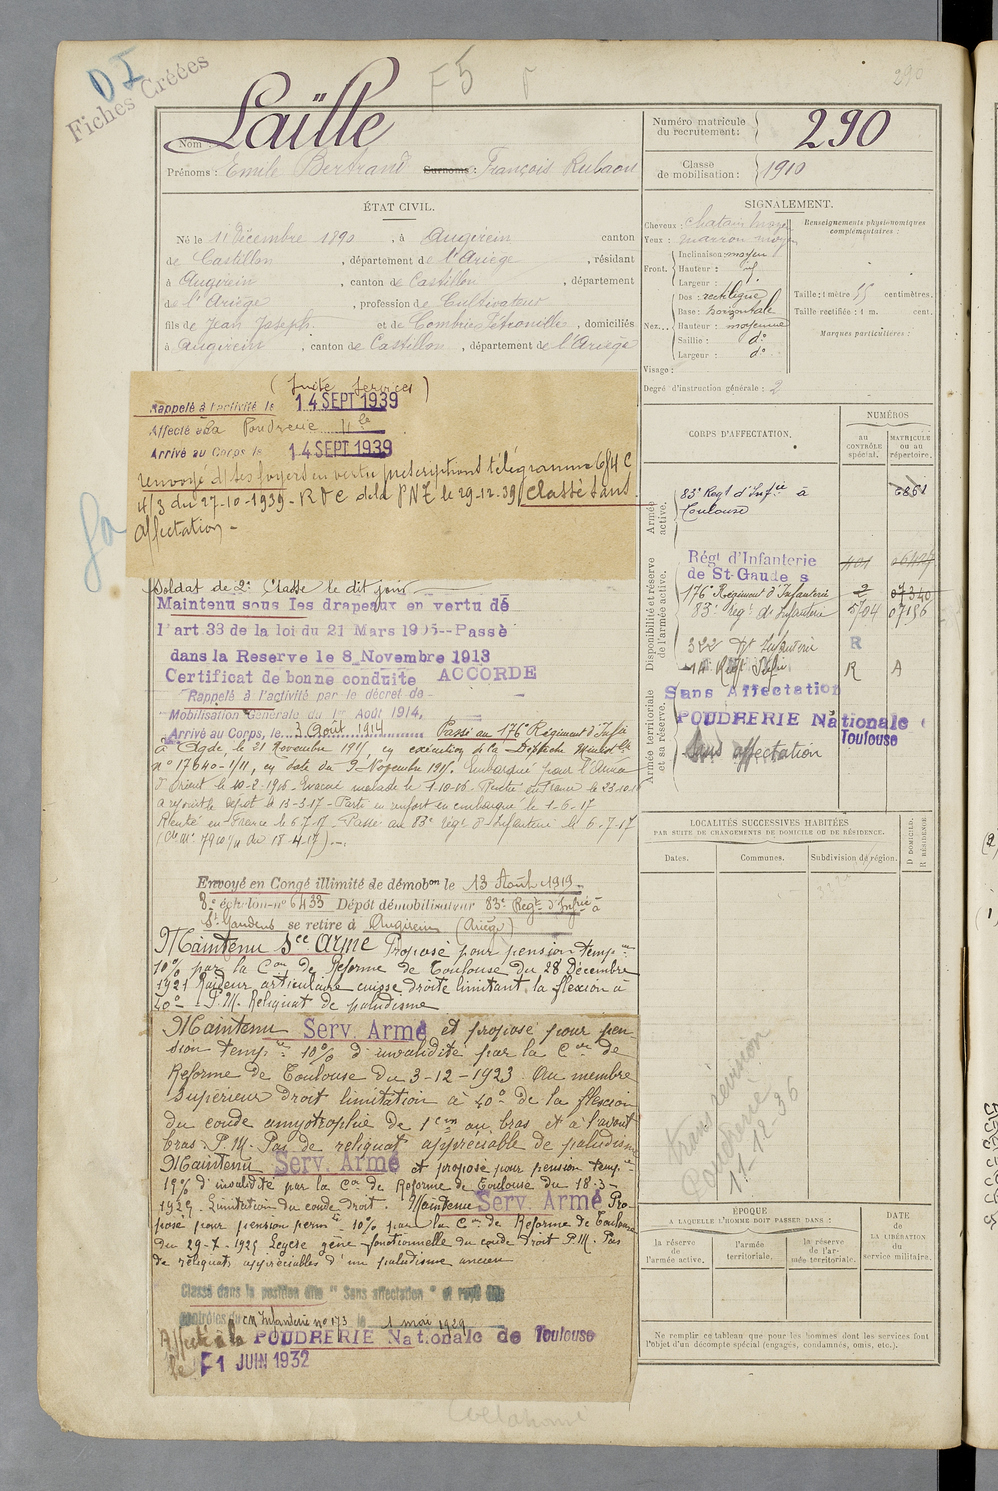 290
D I
Fiches Créées
F5
Laïlle
Nom
Prénoms : Emile Bertrand Surnoms : François
ÉTAT CIVIL.
Né le 11 Décembre 1890, à Augirein canton
de Castillon, département de l'Ariège, résidant
à Augirein, canton de Castillon, département
de l'Ariège, profession de Cultivateur
fils de Jean Joseph et de Combries Pétronille, domiciliés
à Augirein, canton de Castillon, département de l'Ariège
Numéro matricule du recrutement : 290
Classe de mobilisation : 1910
SIGNALEMENT.
Cheveux : chatain moyen
Yeux : marron moyen
Front. Inclinaison : moyen
Hauteur :
Largeur :
Nez... Dos : rectiligne
Base : horizontale
Hauteur : moyenne
Saillie : do
Largeur : do
Visage :
Renseignements physionomiques complémentaires :
Taille : 1 mètre 55 centimètres.
Taille rectifiée : 1 m. cent.
Marques particulières :
Degré d'instruction générale : 2
(Suite services)
Rappelé à l'activité le 14 SEPT 1939
Affecté à la Poudrerie
Arrivé au Corps le 14 SEPT 1939
renvoyé ds ses foyers en vertu prescriptions télégramme 614 C
4/3 du 27-10-1939 - RDC de la PNT le 29-12-39 Classé sans
affectation -
Soldat de 2e Classe le dit jour
Maintenu sous les drapeaux en vertu de
l'art 33 de la loi du 21 Mars 1905--Passé
dans la Reserve le 8 Novembre 1913
Certificat de bonne conduite ACCORDE
Rappelé à l'activité par le décret de
Mobilisation Générale du 1er Août 1914,
Arrivé au Corps, le 3 Août 1914 Passé au 176e Régiment d'Infie
à Agde, le 21 Novembre 1915, en exécution de la Dépêche Minist lle
no 17640-1/11, en date du 9 Novembre 1915. Embarqué pour l'Armée
d'Orient le 10-2-1916 - Evacué malade le 1-10-16 - Rentré en France le 23-10-16
a rejoint le dépôt le 13-3-17 - Parti en renfort en embarqué le 1-6-17
Rentré en France le 6-7-17 - Passé au 83e régt d'Infanterie le 6-7-17
du 18-4-17) -.
Envoyé en Congé illimité de démobon le 13 Août 1919
8e échelon no 6433 Dépôt démobilisateur 83e Regt d'Infie à
St Gaudens se retire à Augirein (Ariège)
Maintenu Sce Armé Proposé pour pension temp re
10% par la Con de Réforme de Toulouse du 28 Décembre
1921 Raideur articulaire cuisse droite limitant la flexion à
40° - P.M. Reliquat de paludisme
Maintenu Serv. Armé et proposé pour pen-
sion temp re 10% d'invalidité par la Con de
Réforme de Toulouse du 3-12-1923. Au membre
supérieur droit limitation à 40° de la flexion
du coude amyotrophie de 1 cm au bras et à l'avant
bras. P.M. Pas de reliquat appréciable de paludisme
Maintenu Serv. Armé et proposé pour pension temp re
10% d'invalidité par la Con de Réforme de Toulouse du 18-3-
1925. Limitation du coude droit. Maintenu Serv. Armé Pro-
posé pour pension perm te 10% par la Con de Réforme de Toulouse
du 29-7-1925 Légère gêne fonctionnelle du coude droit P.M. Pas
de reliquats appréciables d'un paludisme ancien
Classé dans la position dite "Sans affectation" et rayé des
contrôles du CM Infanterie no 173 le 1 mai 1929
Affecté à la POUDRERIE Nationale de Toulouse
le 1 JUIN 1932
CORPS D'AFFECTATION.
NUMÉROS
au CONTRÔLE spécial.
MATRICULE OU AU répertoire.
Armée active.
83e Regt d'Infie à Toulouse 6861
Disponibilité et réserve de l'armée active.
Régt d'Infanterie
de St-Gaudens
176e Régiment d'Infanterie 2 07340
83e regt d'Infanterie 5/04 07186
322 Rt Infanterie R
14 Regt Infie R A
Armée territoriale et sa réserve.
Sans Affectation
POUDRERIE Nationale
Toulouse
Sans affectation
LOCALITÉS SUCCESSIVES HABITÉES
PAR SUITE DE CHANGEMENTS DE DOMICILE OU DE RÉSIDENCE.
Dates.
Communes.
Subdivision de région.
D DOMICILE. R RÉSIDENCE
Poudrerie
11-12-36
ÉPOQUE
A LAQUELLE L'HOMME DOIT PASSER DANS :
la réserve de l'armée active.
l'armée territoriale.
la réserve de l'armée territoriale.
DATE de LA LIBÉRATION du service militaire.
Ne remplir ce tableau que pour les hommes dont les services font
l'objet d'un décompte spécial (engagés, condamnés, omis, etc.).